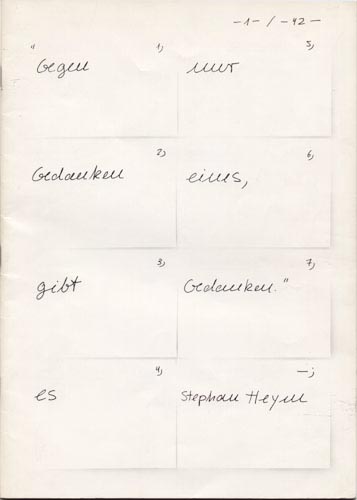 -1- / -42-
1)
"Gegen
2)
Gedanken
3)
gibt
4)
es
5)
nur
6)
eines,
7)
Gedanken."
—;
Stephan Heym